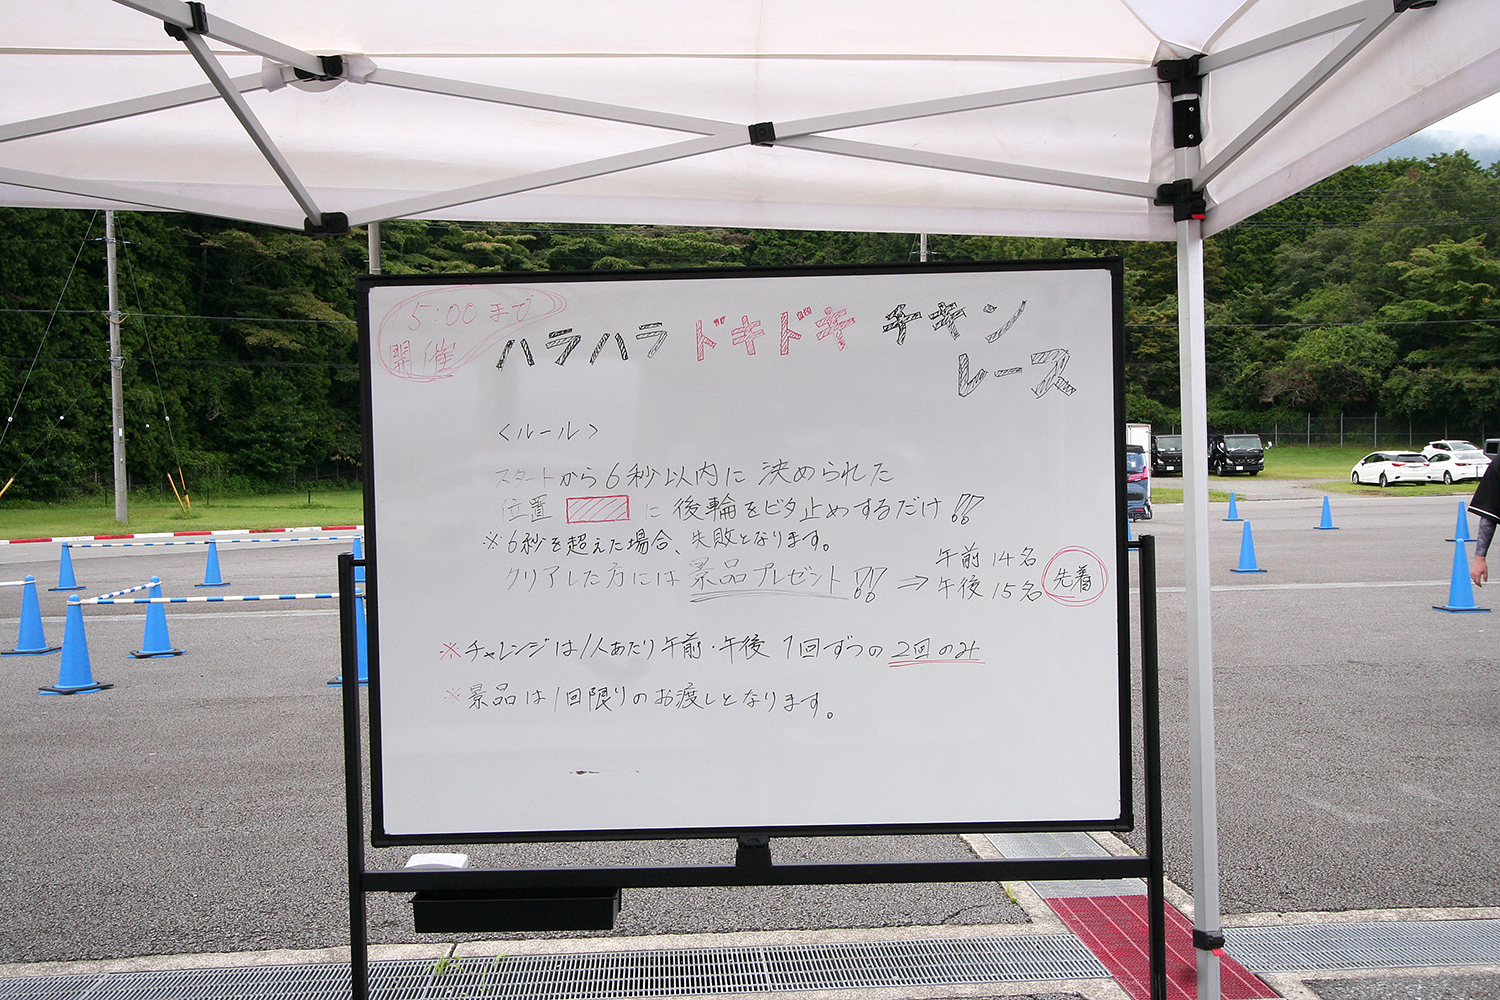 5:00まで
開催
ハラハラ ドキドキ チキン
レース
<ルール>
スタートから6秒以内に決められた
位置 に後輪をビタ止めするだけ!!
※6秒を超えた場合、失敗となります。
クリアした方には景品プレゼント!!⇒ 午前14名
午後15名 先着
※チャレンジは1人あたり午前・午後 1回ずつの2回のみ
※景品は1回限りのお渡しとなります。